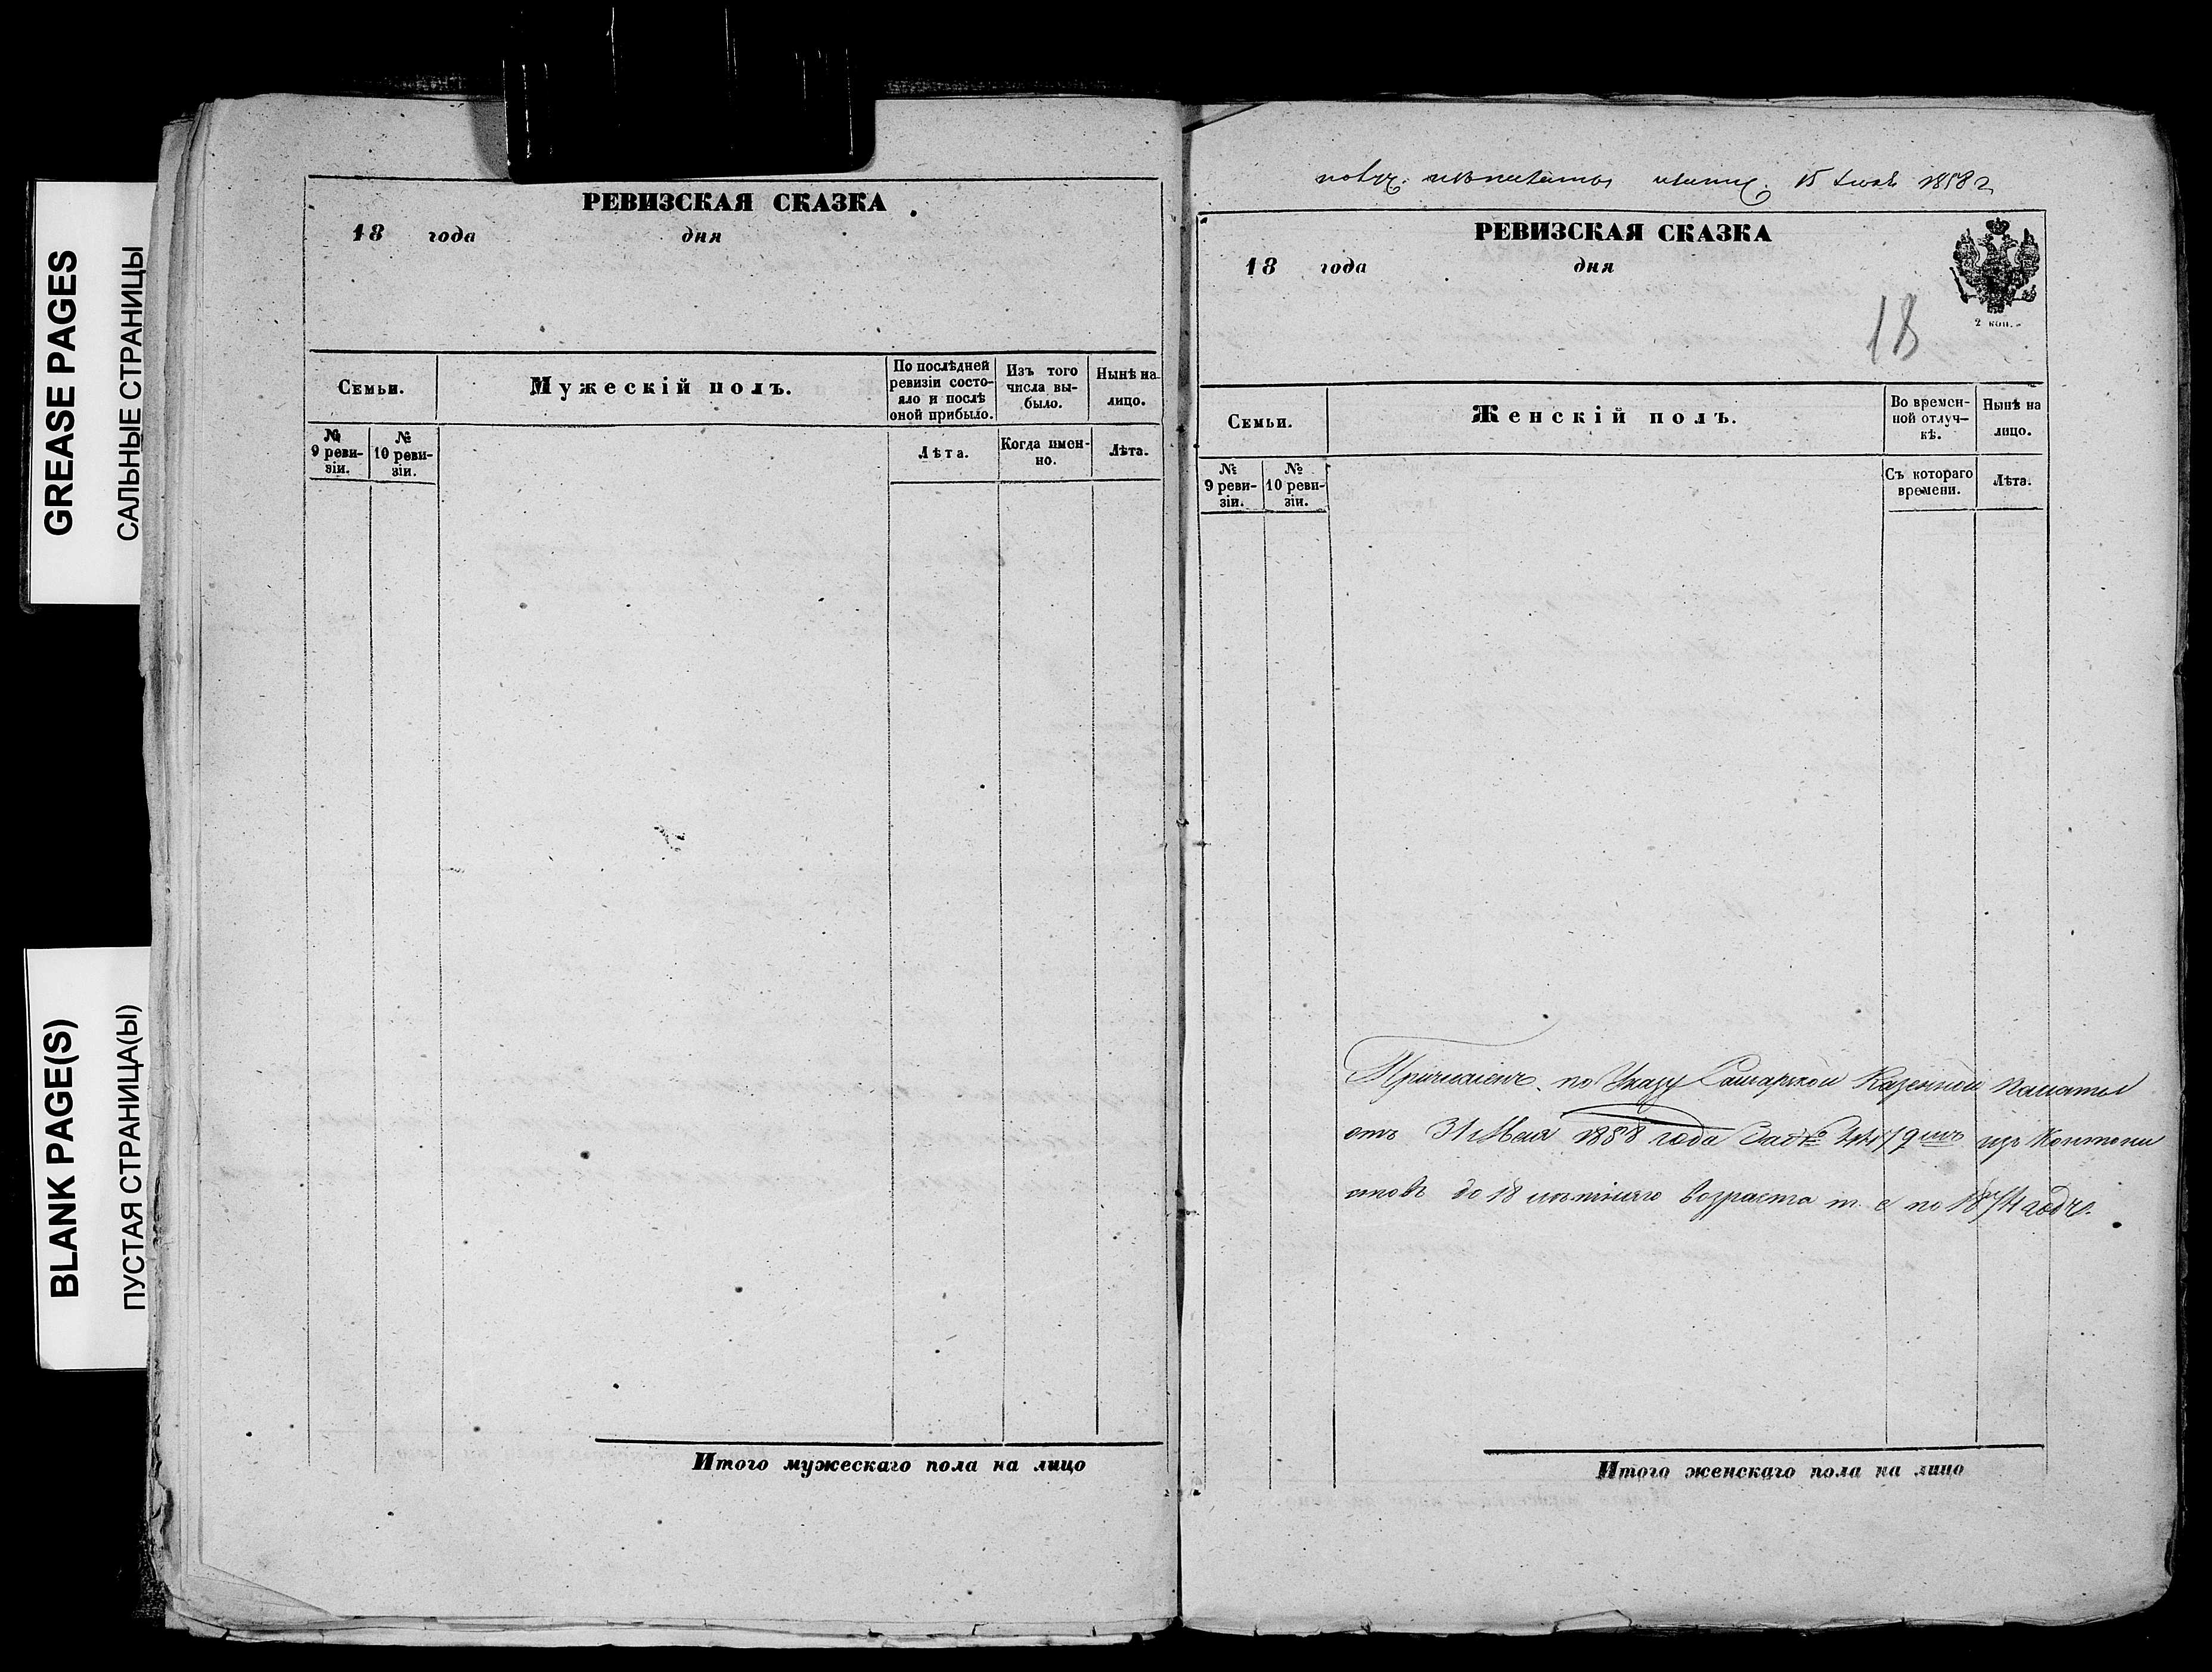 GREASE PAGES
САЛЬНЫЕ СТРАНИЦЫ
BLANK PAGE(S)
ПУСТАЯ СТРАНИЦА(Ы)
РЕВИЗСКАЯ СКАЗКА
18 года дня
Семьи.
Мужескій полъ.
По послѣдней ревизіи состояло и послѣ оной прибыло.
Изъ того числа выбыло.
Нынѣ на лицо.
№ 9 ревизіи.
№ 10 ревизіи.
Лѣта.
Когда именно.
Лѣта.
Итого мужескаго пола на лицо
15 1858 г
РЕВИЗСКАЯ СКАЗКА
18 года дня
2 коп.
18
Семьи.
Женскій полъ.
Во временной отлучкѣ.
Нынѣ на лицо.
№ 9 ревизіи.
№ 10 ревизіи.
Съ котораго времени.
Лѣта.
Причисленъ по Указу Самарской Казенной Палаты
отъ 31 Мая 1858 года За № изъ Кантони
стовъ до 18 лѣтняго возраста т. е по 1874 годъ.
Итого женскаго пола на лицо